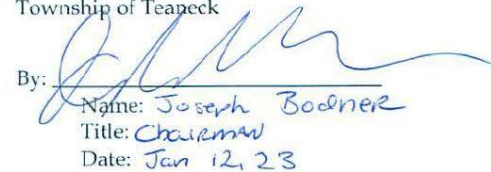 Township of Teaneck
By:
Name: Joseph Bodner
Title: Chairman
Date: Jan 12, 23